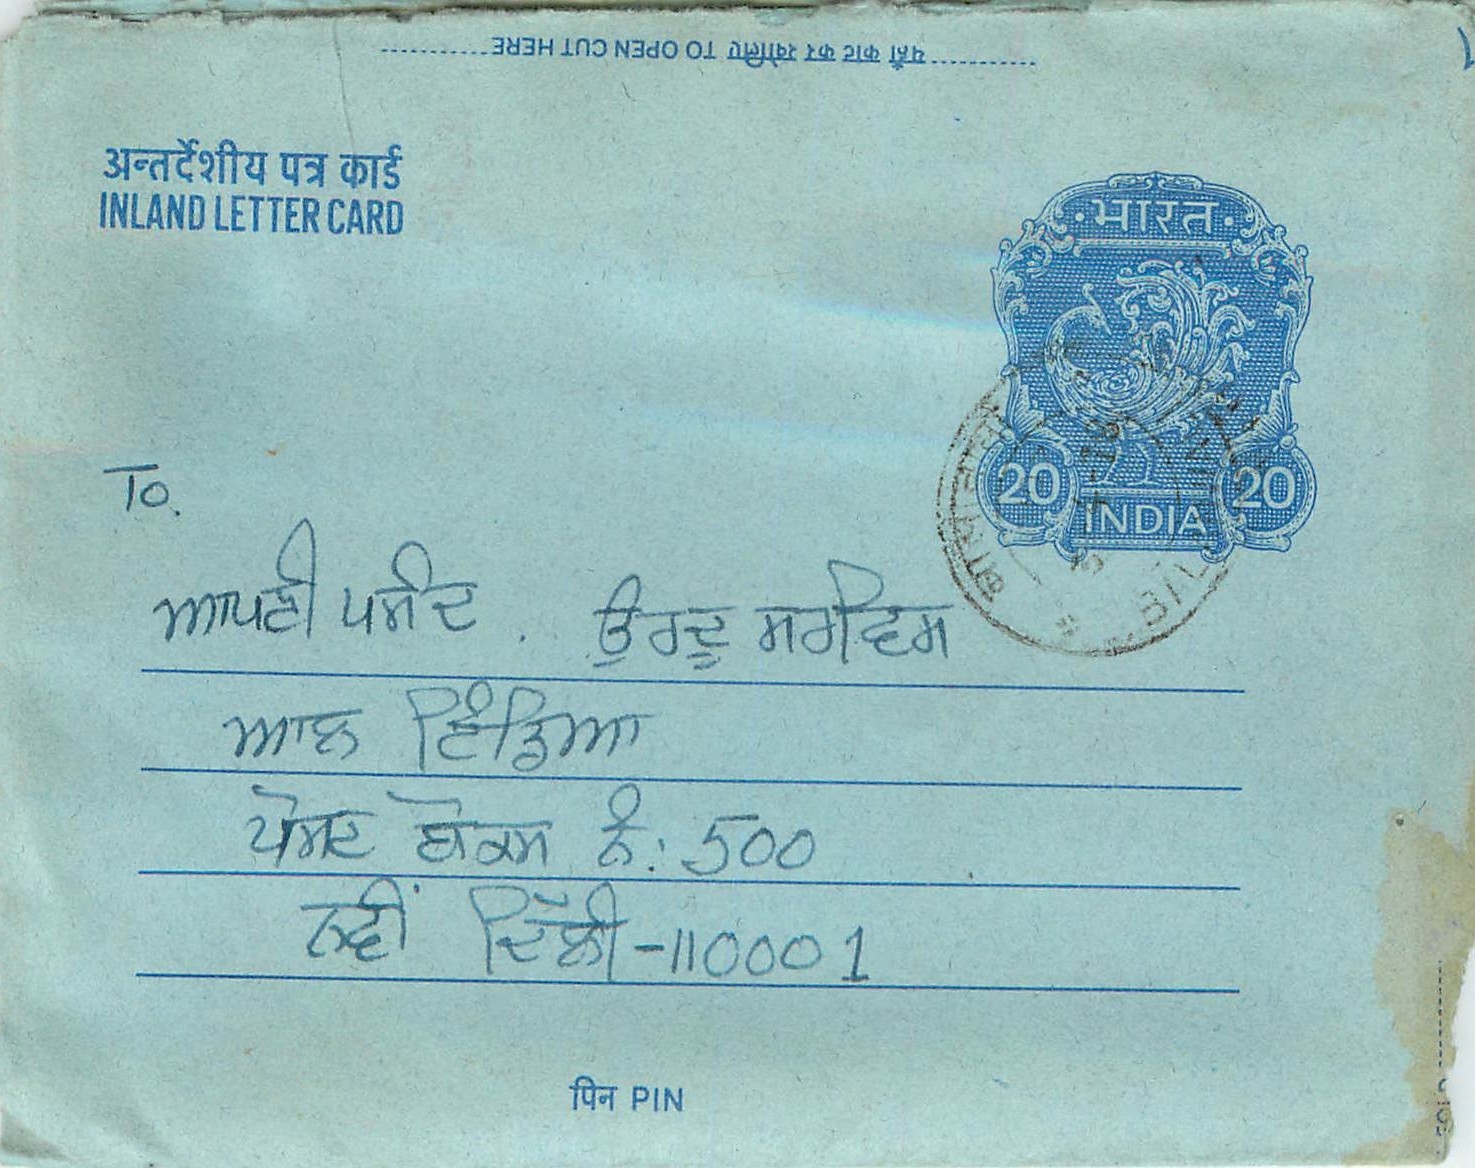 यहाँ काट कर खोलिए TO OPEN CUT HERE
अन्तर्देशीय पत्र कार्ड
INLAND LETTER CARD
भारत
20 20
INDIA
To.
ਆਪਣੀ ਪਸੰਦ . ਉਰਦੂ ਸਰਵਿਸ
ਆਲ ਇੰਡਿਆ
ਪੋਸਟ ਬੋਕਸ ਨੰ: 500
ਨਵੀਂ ਦਿੱਲੀ-110001
पिन PIN